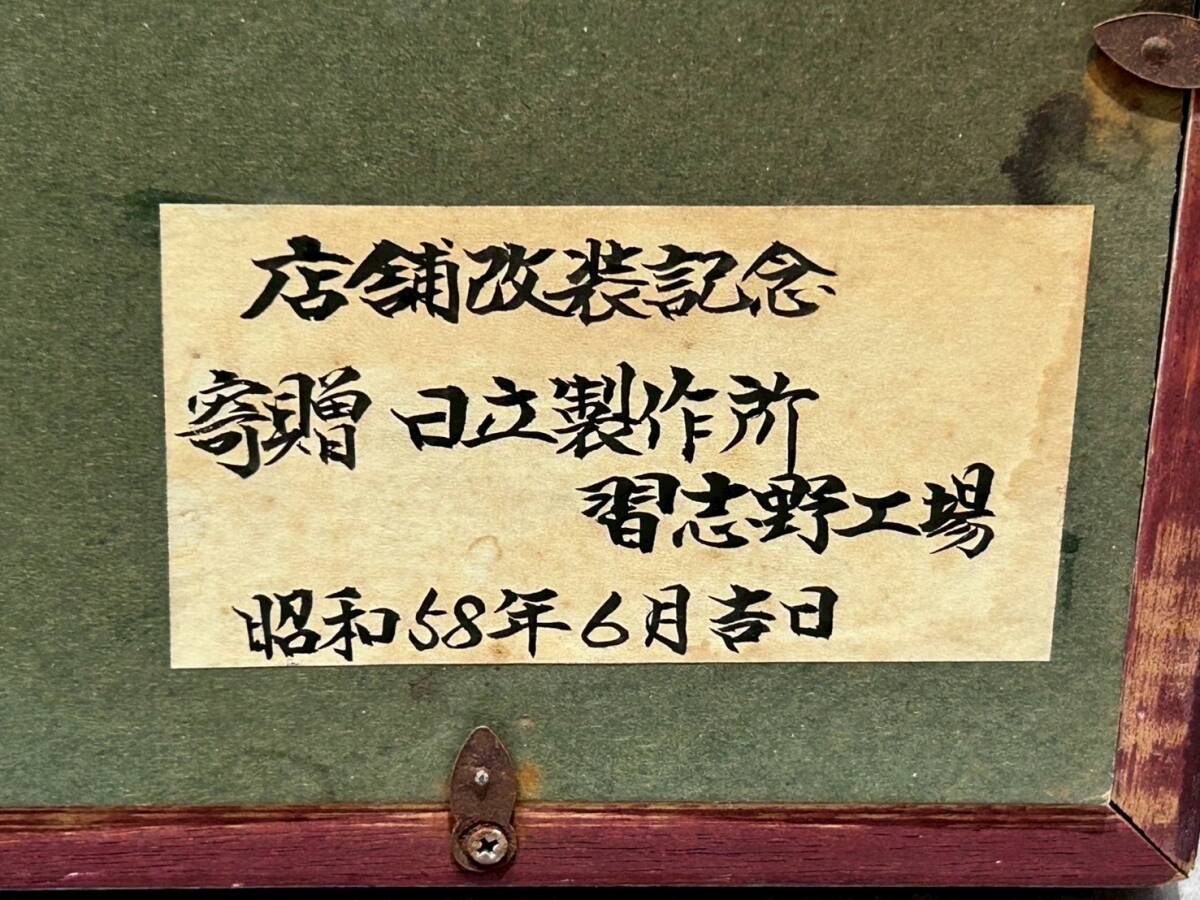 店舗改装記念
寄贈 日立製作所
習志野工場
昭和58年6月吉日